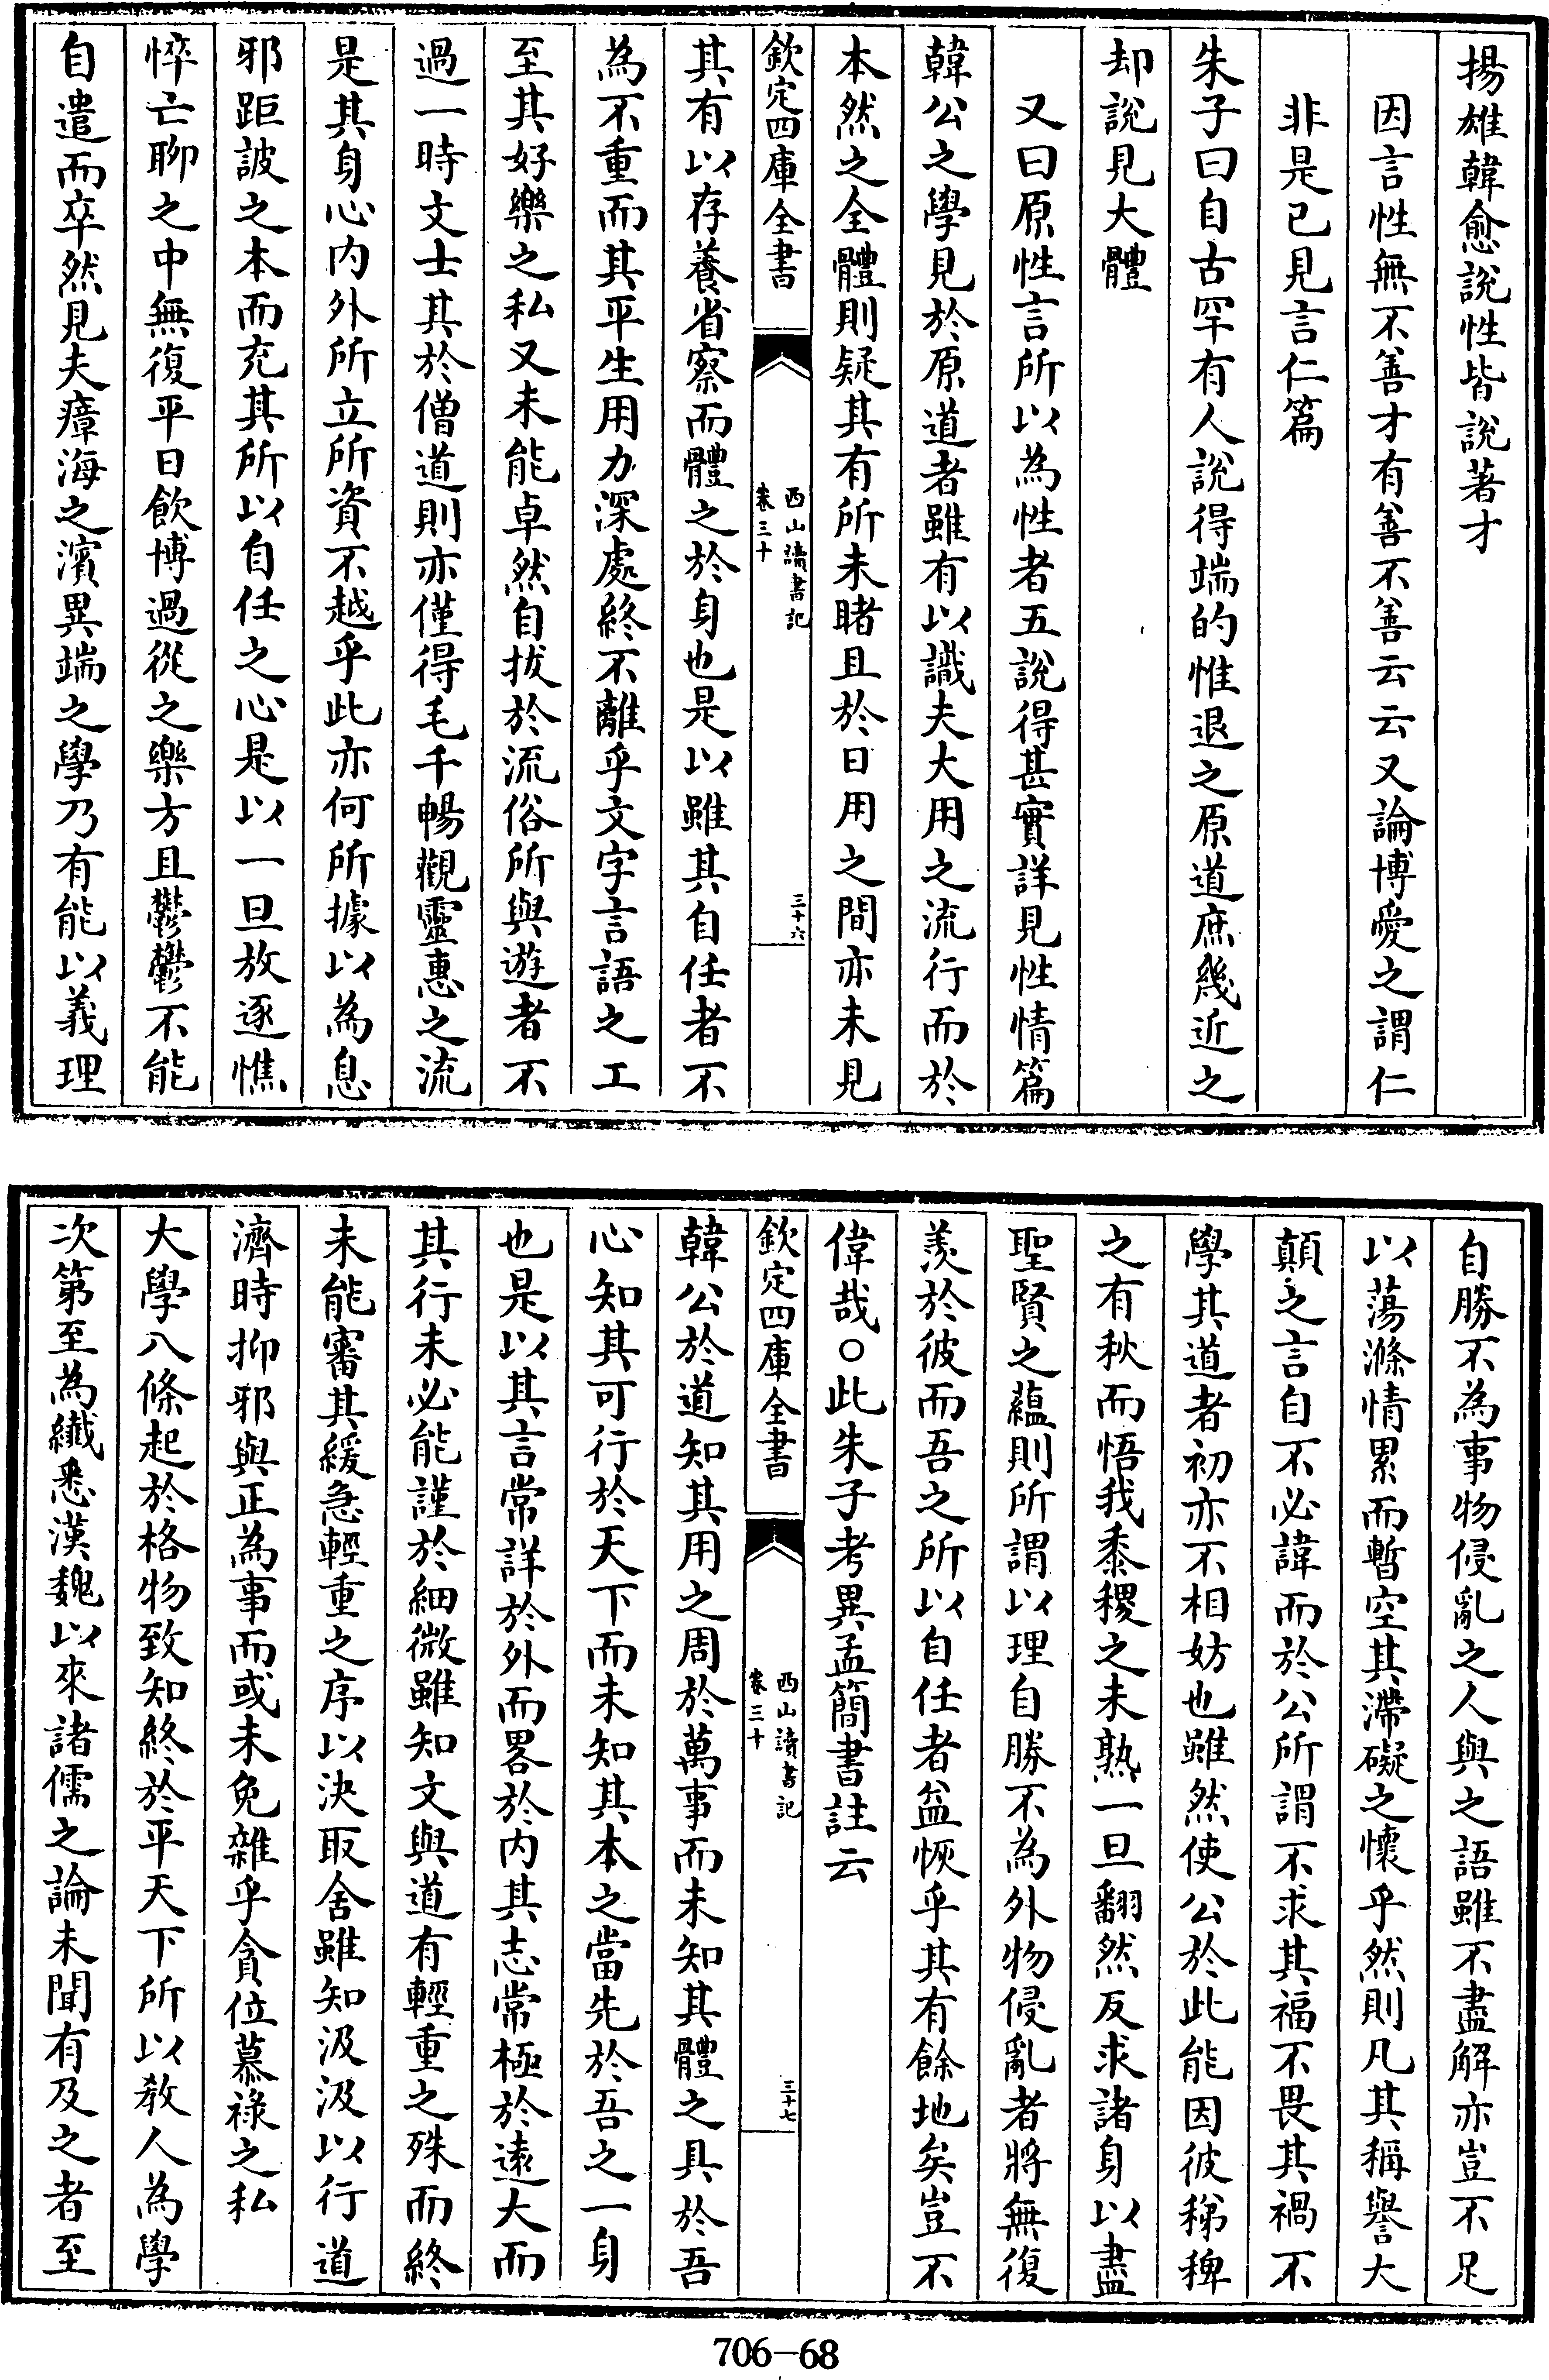 揚雄韓愈說性皆說著才
因言性無不善才有善不善云云又論博愛之謂仁
非是已見言仁篇
朱子曰自古罕有人說得端的惟退之原道庶幾近之
却說見大體
又曰原性言所以為性者五說得甚實詳見性情篇
韓公之學見於原道者雖有以識夫大用之流行而於
本然之全體則疑其有所未睹且於日用之間亦未見
欽定四庫全書
西山讀書記
卷三十
三十六
其有以存養省察而體之於身也是以雖其自任者不
為不重而其平生用力深處終不離乎文字言語之工
至其好樂之私又未能卓然自拔於流俗所與遊者不
過一時文士其於僧道則亦僅得毛千暢觀靈惠之流
是其身心內外所立所資不越乎此亦何所據以為息
邪距詖之本而充其所以自任之心是以一旦放逐憔
悴亡聊之中無復平日飲博過從之樂方且鬱鬱不能
自遣而卒然見夫瘴海之濱異端之學乃有能以義理
自勝不為事物侵亂之人與之語雖不盡解亦豈不足
以蕩滌情累而暫空其滯礙之懷乎然則凡其稱譽大
顛之言自不必諱而於公所謂不求其福不畏其禍不
學其道者初亦不相妨也雖然使公於此能因彼稊稗
之有秋而悟我黍稷之未熟一旦翻然反求諸身以盡
聖賢之蘊則所謂以理自勝不為外物侵亂者將無復
羨於彼而吾之所以自任者益恢乎其有餘地矣豈不
偉哉○此朱子考異孟簡書註云
欽定四庫全書
西山讀書記
卷三十
三十七
韓公於道知其用之周於萬事而未知其體之具於吾
心知其可行於天下而未知其本之當先於吾之一身
也是以其言常詳於外而畧於內其志常極於遠大而
其行未必能謹於細微雖知文與道有輕重之殊而終
未能審其緩急輕重之序以決取舍雖知汲汲以行道
濟時抑邪與正為事而或未免雜乎貪位慕祿之私
大學八條起於格物致知終於平天下所以教人為學
次第至為纖悉漢魏以來諸儒之論未聞有及之者至
706-68